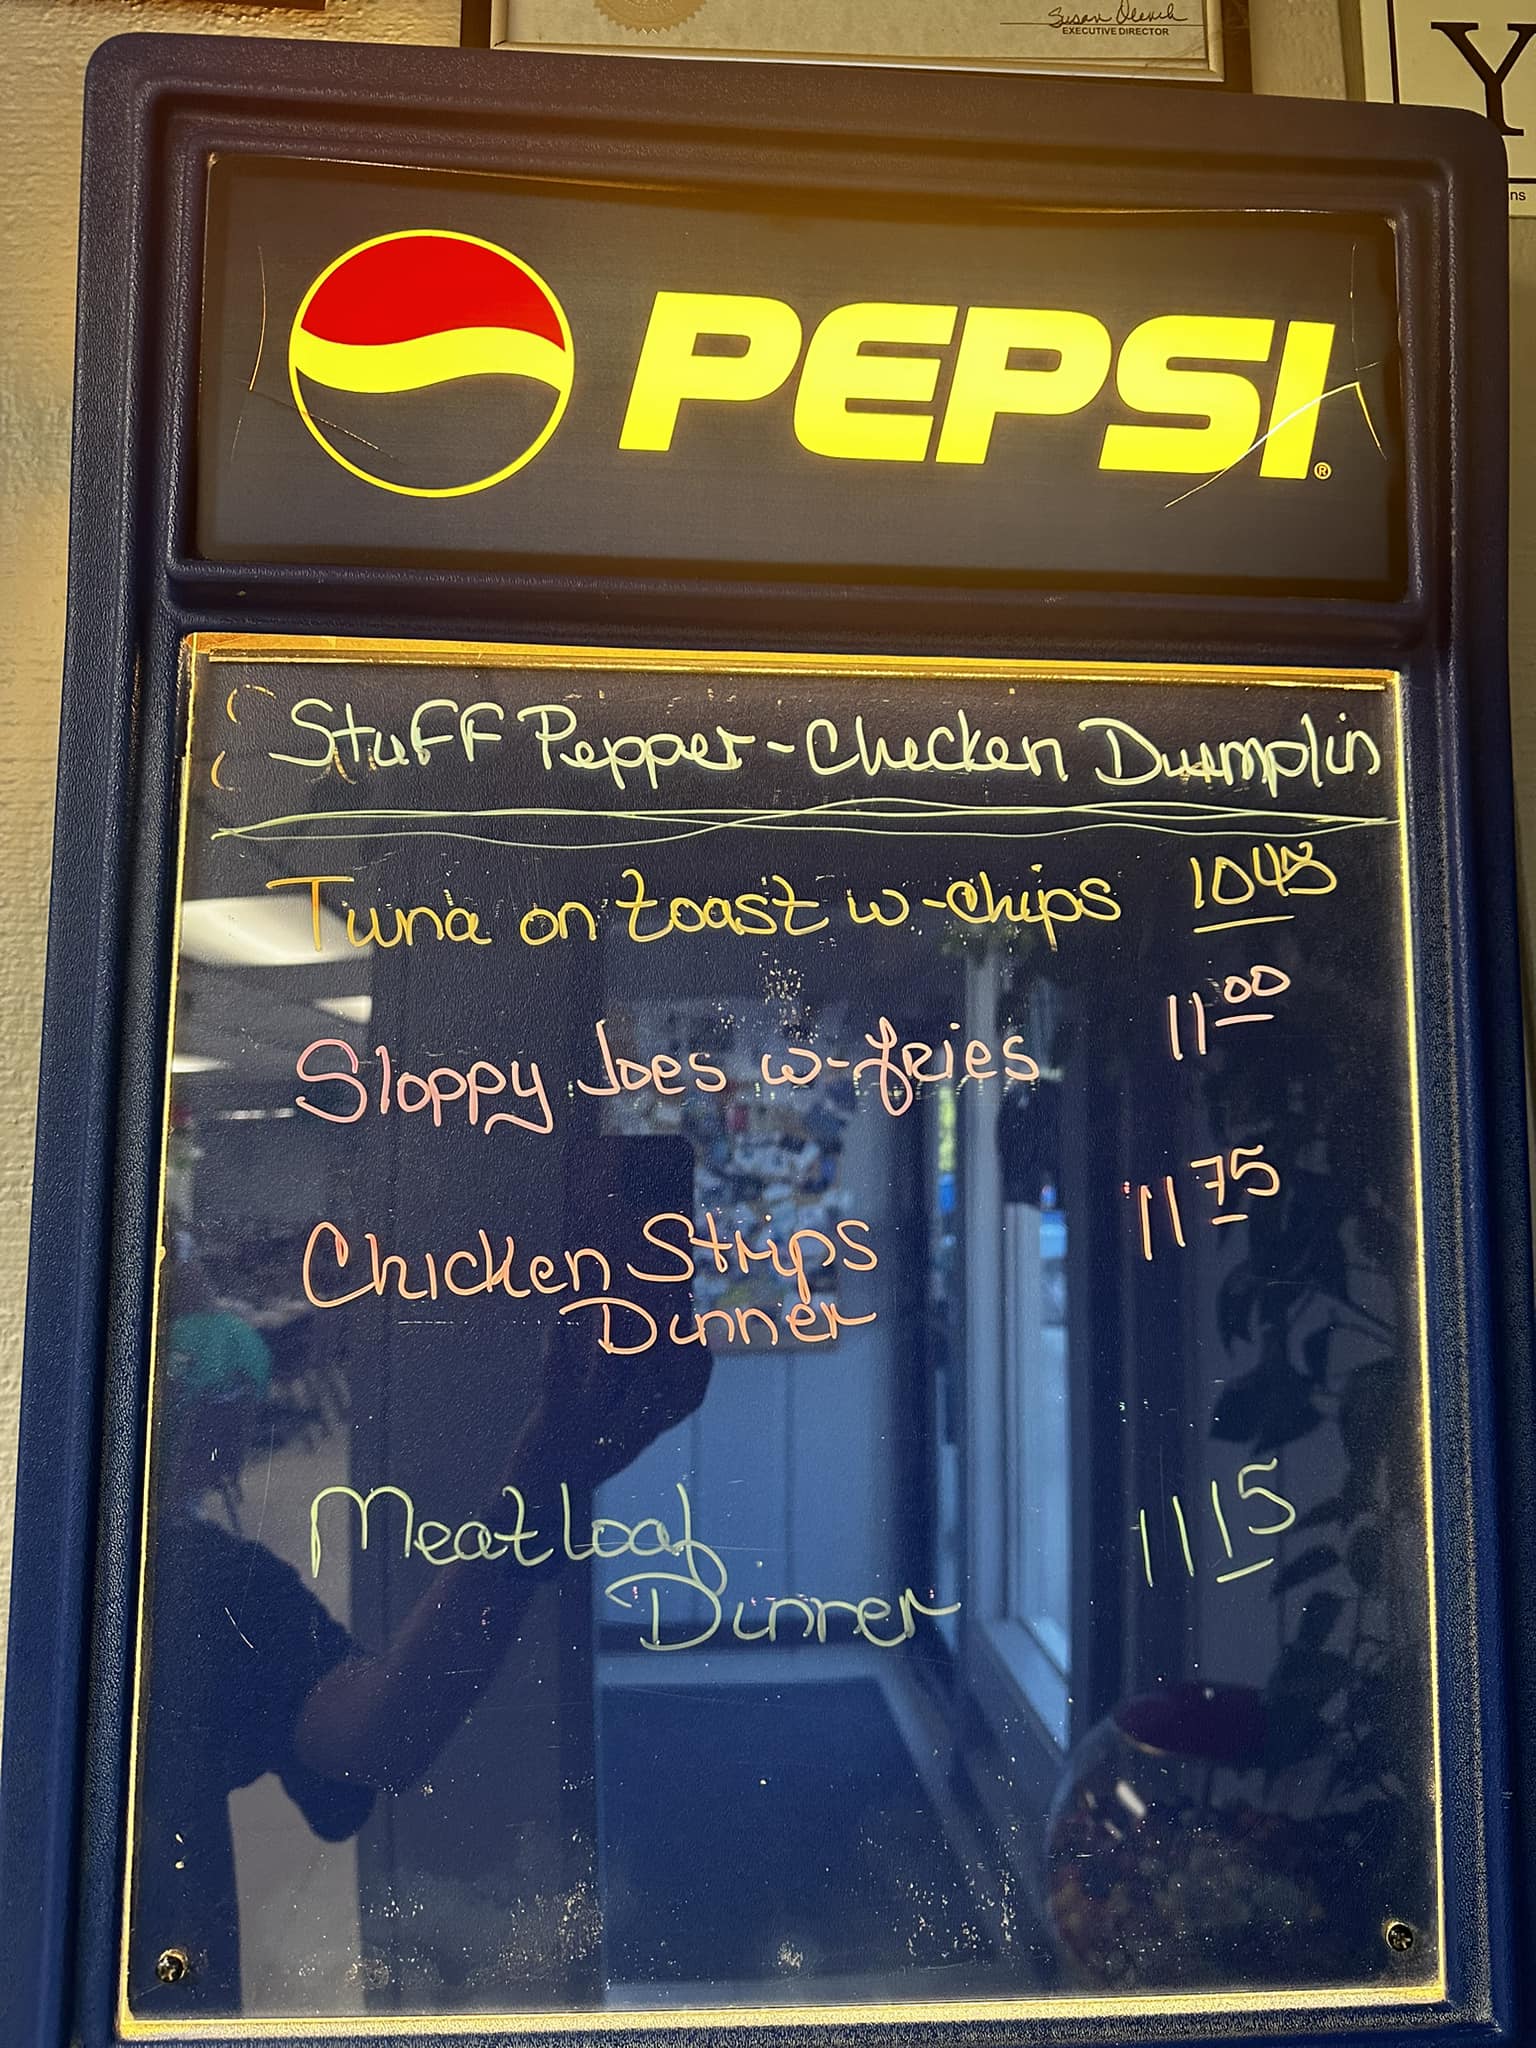 Susan
EXECUTIVE DIRECTOR
Y
ns
PEPSI®
Stuff Pepper-Chicken Dumplin
Tuna on toast w-Chips 1045
Sloppy Joes w-fries 1100
Chicken Strips 1175
Dinner
Meatloaf 1115
Dinner